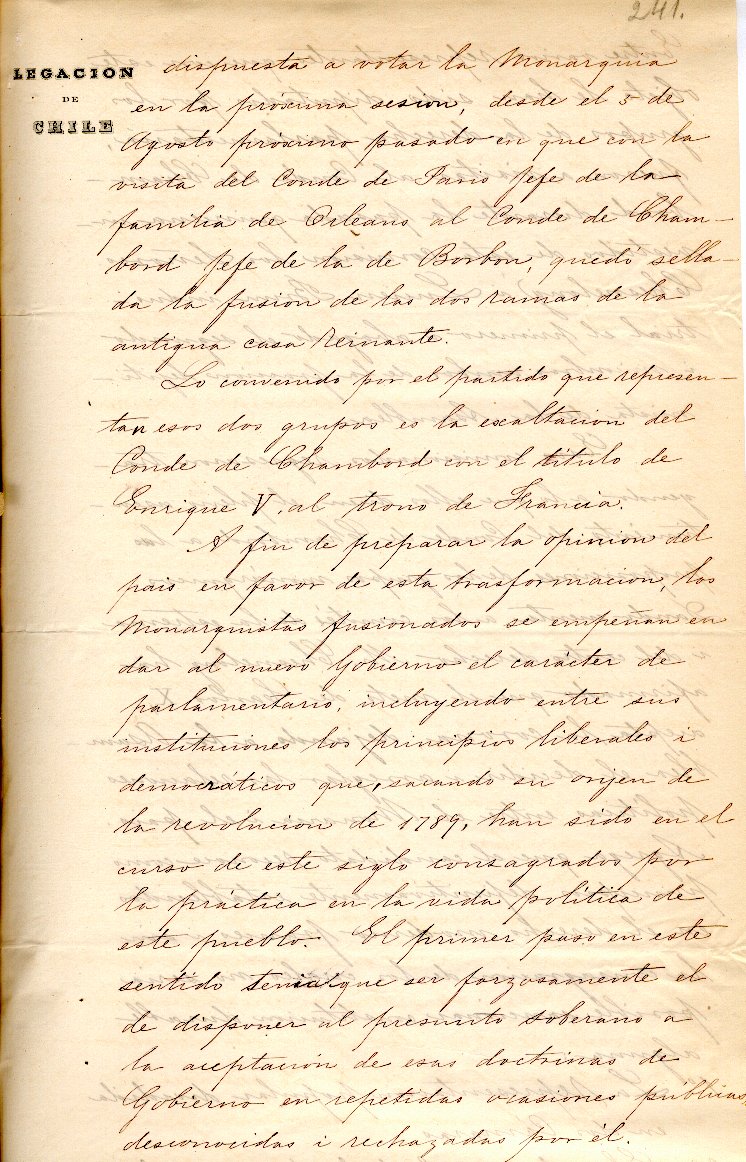 241.
LEGACION
DE
CHILE
dispuesta a votar la Monarquia
en la próxima sesion, desde el 5 de
Agosto próximo pasado en que con la
visita del Conde de Paris Jefe de la
familia de Orleans al Conde de Cham-
bord Jefe de la de Borbon, quedó sella-
da la fusion de las dos ramas de la
antigua casa Reinante.
Lo convenido por el partido que represen-
tan esos dos grupos es la exaltacion del
Conde de Chambord con el titulo de
Enrique V. al trono de Francia.
A fin de preparar la opinion del
pais en favor de esta trasformacion, los
Monarquistas fusionados se empeñan en
dar al nuevo Gobierno el carácter de
parlamentario, incluyendo entre sus
instituciones los principios liberales i
democráticos que, sacando su orijen de
la revolucion de 1789, han sido en el
curso de este siglo consagrados por
la práctica en la vida política de
este pueblo. El primer paso en este
sentido tenia que ser forzosamente el
de disponer al presunto soberano a
la aceptacion de esas doctrinas de
Gobierno en repetidas ocasiones públicas,
desconocidas i rechazadas por él.